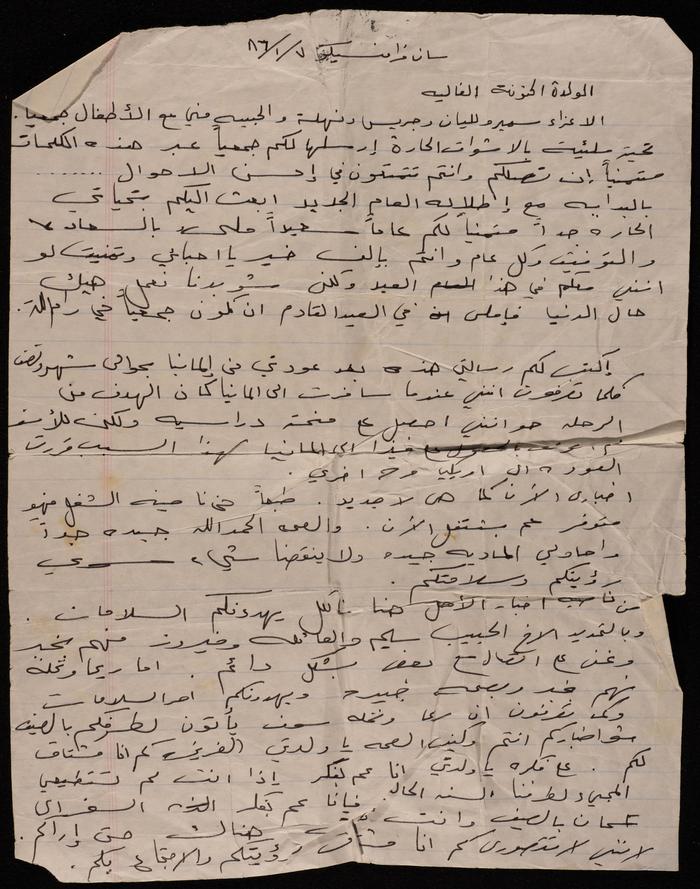 سان فرانسيسكو ٧/١/٨٦
الوالدة الحنونة الغاليه
الاعزاء سمير وليان وجريس ونهلة والحبيبه مني مع الأطفال جميعاً.
تحية مليئة بالاشواق الحارة إرسلها لكم جميعاً عبر هذه الكلمات
متمنياً إن تصلكم وانتم تتمتعون في إحسن الاحوال ........
بالبدايه مع إطلاله العام الجديد ابعث اليكم بتحياتي
الحاره جداً متمنياً لكم عاماً سعيداً مليء بالسعاده
والتوفيق وكل عام وانتم بإلف خير يا احبائي وتمنيت لو
انني معكم في هذا العيد ولكن شو بدنا نعمل هيك
حال الدنيا فإملي في العيد القادم ان نكون جميعاً في رام الله.
إكتب لكم رسالتي هذه بعد عودتي من إلمانيا بحوالي شهر ونصف
كلما تعرفون انني عندما سافرت الى المانيا كان الهدف من
الرحله هو انني احصل على منحة دراسيه ولكن للأسف
لهذا السبب قررت
العوده الى امريكا مره اخرى.
اخباري الأن كما هي لا جديد. طبعاً من ناحيه الشغل فهو
متوفر عم بشتغل الأن. والصحه الحمدالله جيده جداً
واحوالي الماديه جيده ولا ينقصنا شيء سوى
رؤيتكم وسلامتكم.
من ناحيه اخبار الأهل هنا فالكل يهدونكم السلامات.
وبالتحديد الاخ الحبيب سليم والعائله وفيروز فهم بخير
ونحن على اتصال مع بعض بشكل دائم. اما ريما ونخله
فهم بخير وبصحه جيده ويهدونكم احر السلامات
وكما تعرفون ان ريما ونخله سوف يأتون لطرفكم بالصيف
شو اخباركم انتم وكيف الصحه يا والدتي العزيزه كم انا مشتاق
لكم. على فكره يا والدتي انا عم بفكر إذا انت لم تستطيعي
المجيء لطرفنا السنه الحاليه. فإنا عم بفكر السفر الى
عمان بالصيف وانت هناك حتى إراكم.
لانني لا تتصوري كم انا مشتاق لرؤيتكم والاجتماع بكم.